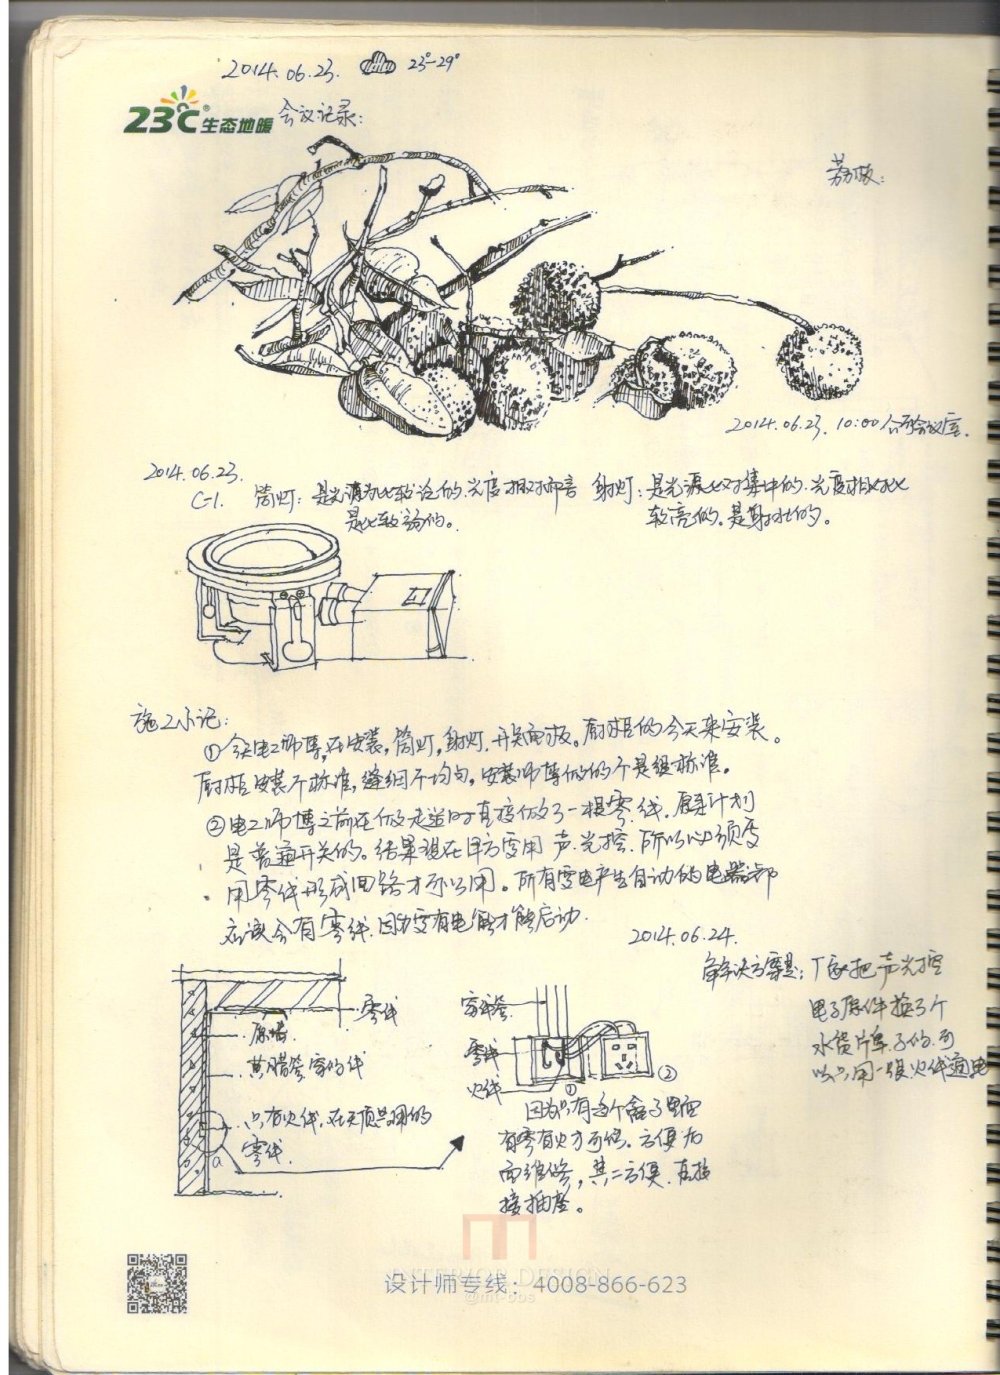 2014.06.23. 23°-29°
23℃®生态地暖 会议记录:
荔枝:
2014.06.23. 10:00 会议室.
2014.06.23.
C-1. 筒灯: 是光源比较泛的.光度相对而言 射灯: 是光源比对集中的.光度相对比
是比较弱的。 较亮的。是射状的。
施工小记:
①今天电工师傅,在安装,筒灯,射灯.开关面板。厨柜的今天来安装。
厨柜安装不标准,缝细不均匀。安装师傅做的不是很标准。
②电工师傅之前在做走道时直接做了一根零线.原来计划
是普通开关的。结果现在甲方要用声.光控.所以必须要
用零线形成回路才可以用。所有零电产生自动的电器都
应该会有零线.因为要有电能才能启动.
2014.06.24.
解决方案是: 厂家把声光控
电子原件换了个
水货片单子的.可
以只用一根火线通电
零线
原墙
黄腊管穿的线
只有火线,在天顶只用的
零线.
a
穿线管.
零线
火线
① ②
因为只有每个盒子里面
有零有火才可修.方便为
而维修,其二方便.直接
接插座。
INTERIOR DESIGN
设计师专线：4008-866-623
@mt-bbs